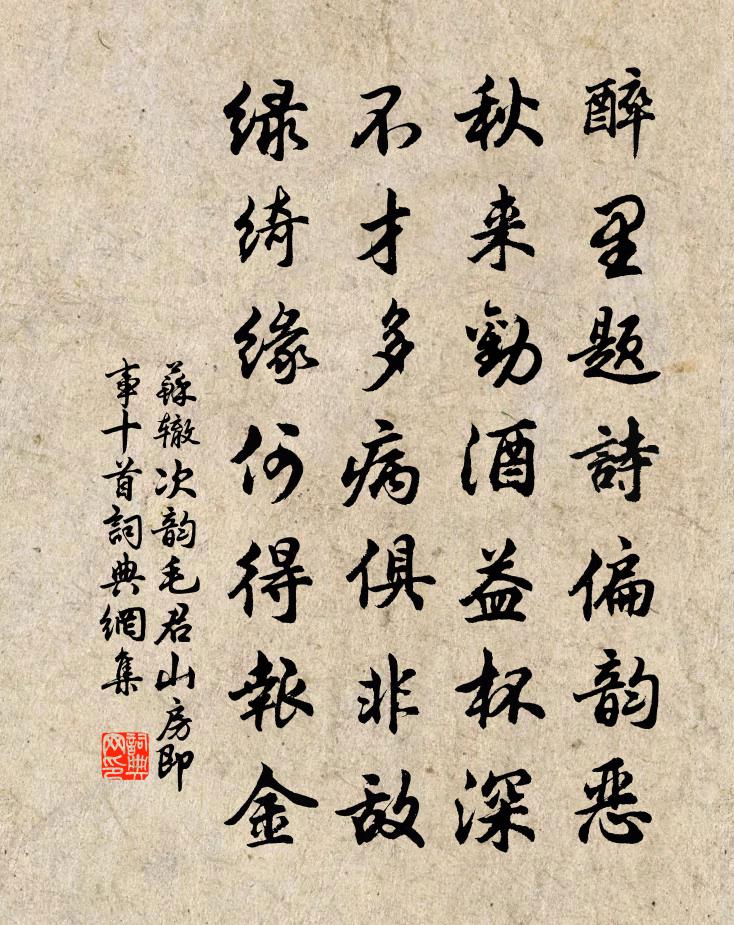 醉里题詩偏韵恶
秋来勸酒益杯深
不才多病俱非敌
緑绮缘何得報金
蘇辙次韵毛君山房即
事十首詞典網集
詞典
网印